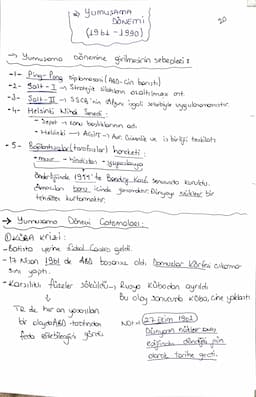 → YUMUŞAMA
DÖNEMİ
(1961-1990)
20
→ Yumuşama Dönemine girilmesinin sebepleri:
-1- Ping-Pong diplomasisi (ABD-Çin barıtı)
-2- Salt-I → Stratejik silahların azaltılması ant.
-3- Salt-II → SSCB'nin Afganı işgali sebebiyle uygulanamamıştır.
-4- Helsinki Nihai Senedi:
→ Depot → konu başlıklarının adı
→ Helsinki → AGİT → Avr. Güvenlik ve iş birliği teşkilatı
-5- Bağlantısızlar (tarafsızlar) hareketi:
- mısır - hindistan - yugoslavya
Önderliğinde 1955'te Bandung Konf. sonucunda kuruldu.
Amaçları barış içinde yaşamaktır. Dünyayı nükleer bir
tehditten kurtarmaktır.
→ Yumuşama Dönemi Çatışmaları:
① KÜBA krizi:
- Batista yerine Fidel Castro geldi.
- 17 Nisan 1961 de ABD başarısız oldu. Domuzlar Körfezi çıkarma-
sını yaptı.
- Karşılıklı füzeler söküldü → Rusya Kübadan ayrıldı
Bu olay sonucunda Küba, Çine yaklaştı
TR de her an yaşanılan
bir olayda ABD tarafından
feda edilebileceğini gördü
NOT: 27 Ekim 1962
Dünyanın nükleer savaş
eşiğinden döndüğü gün
olarak tarihe geçti.